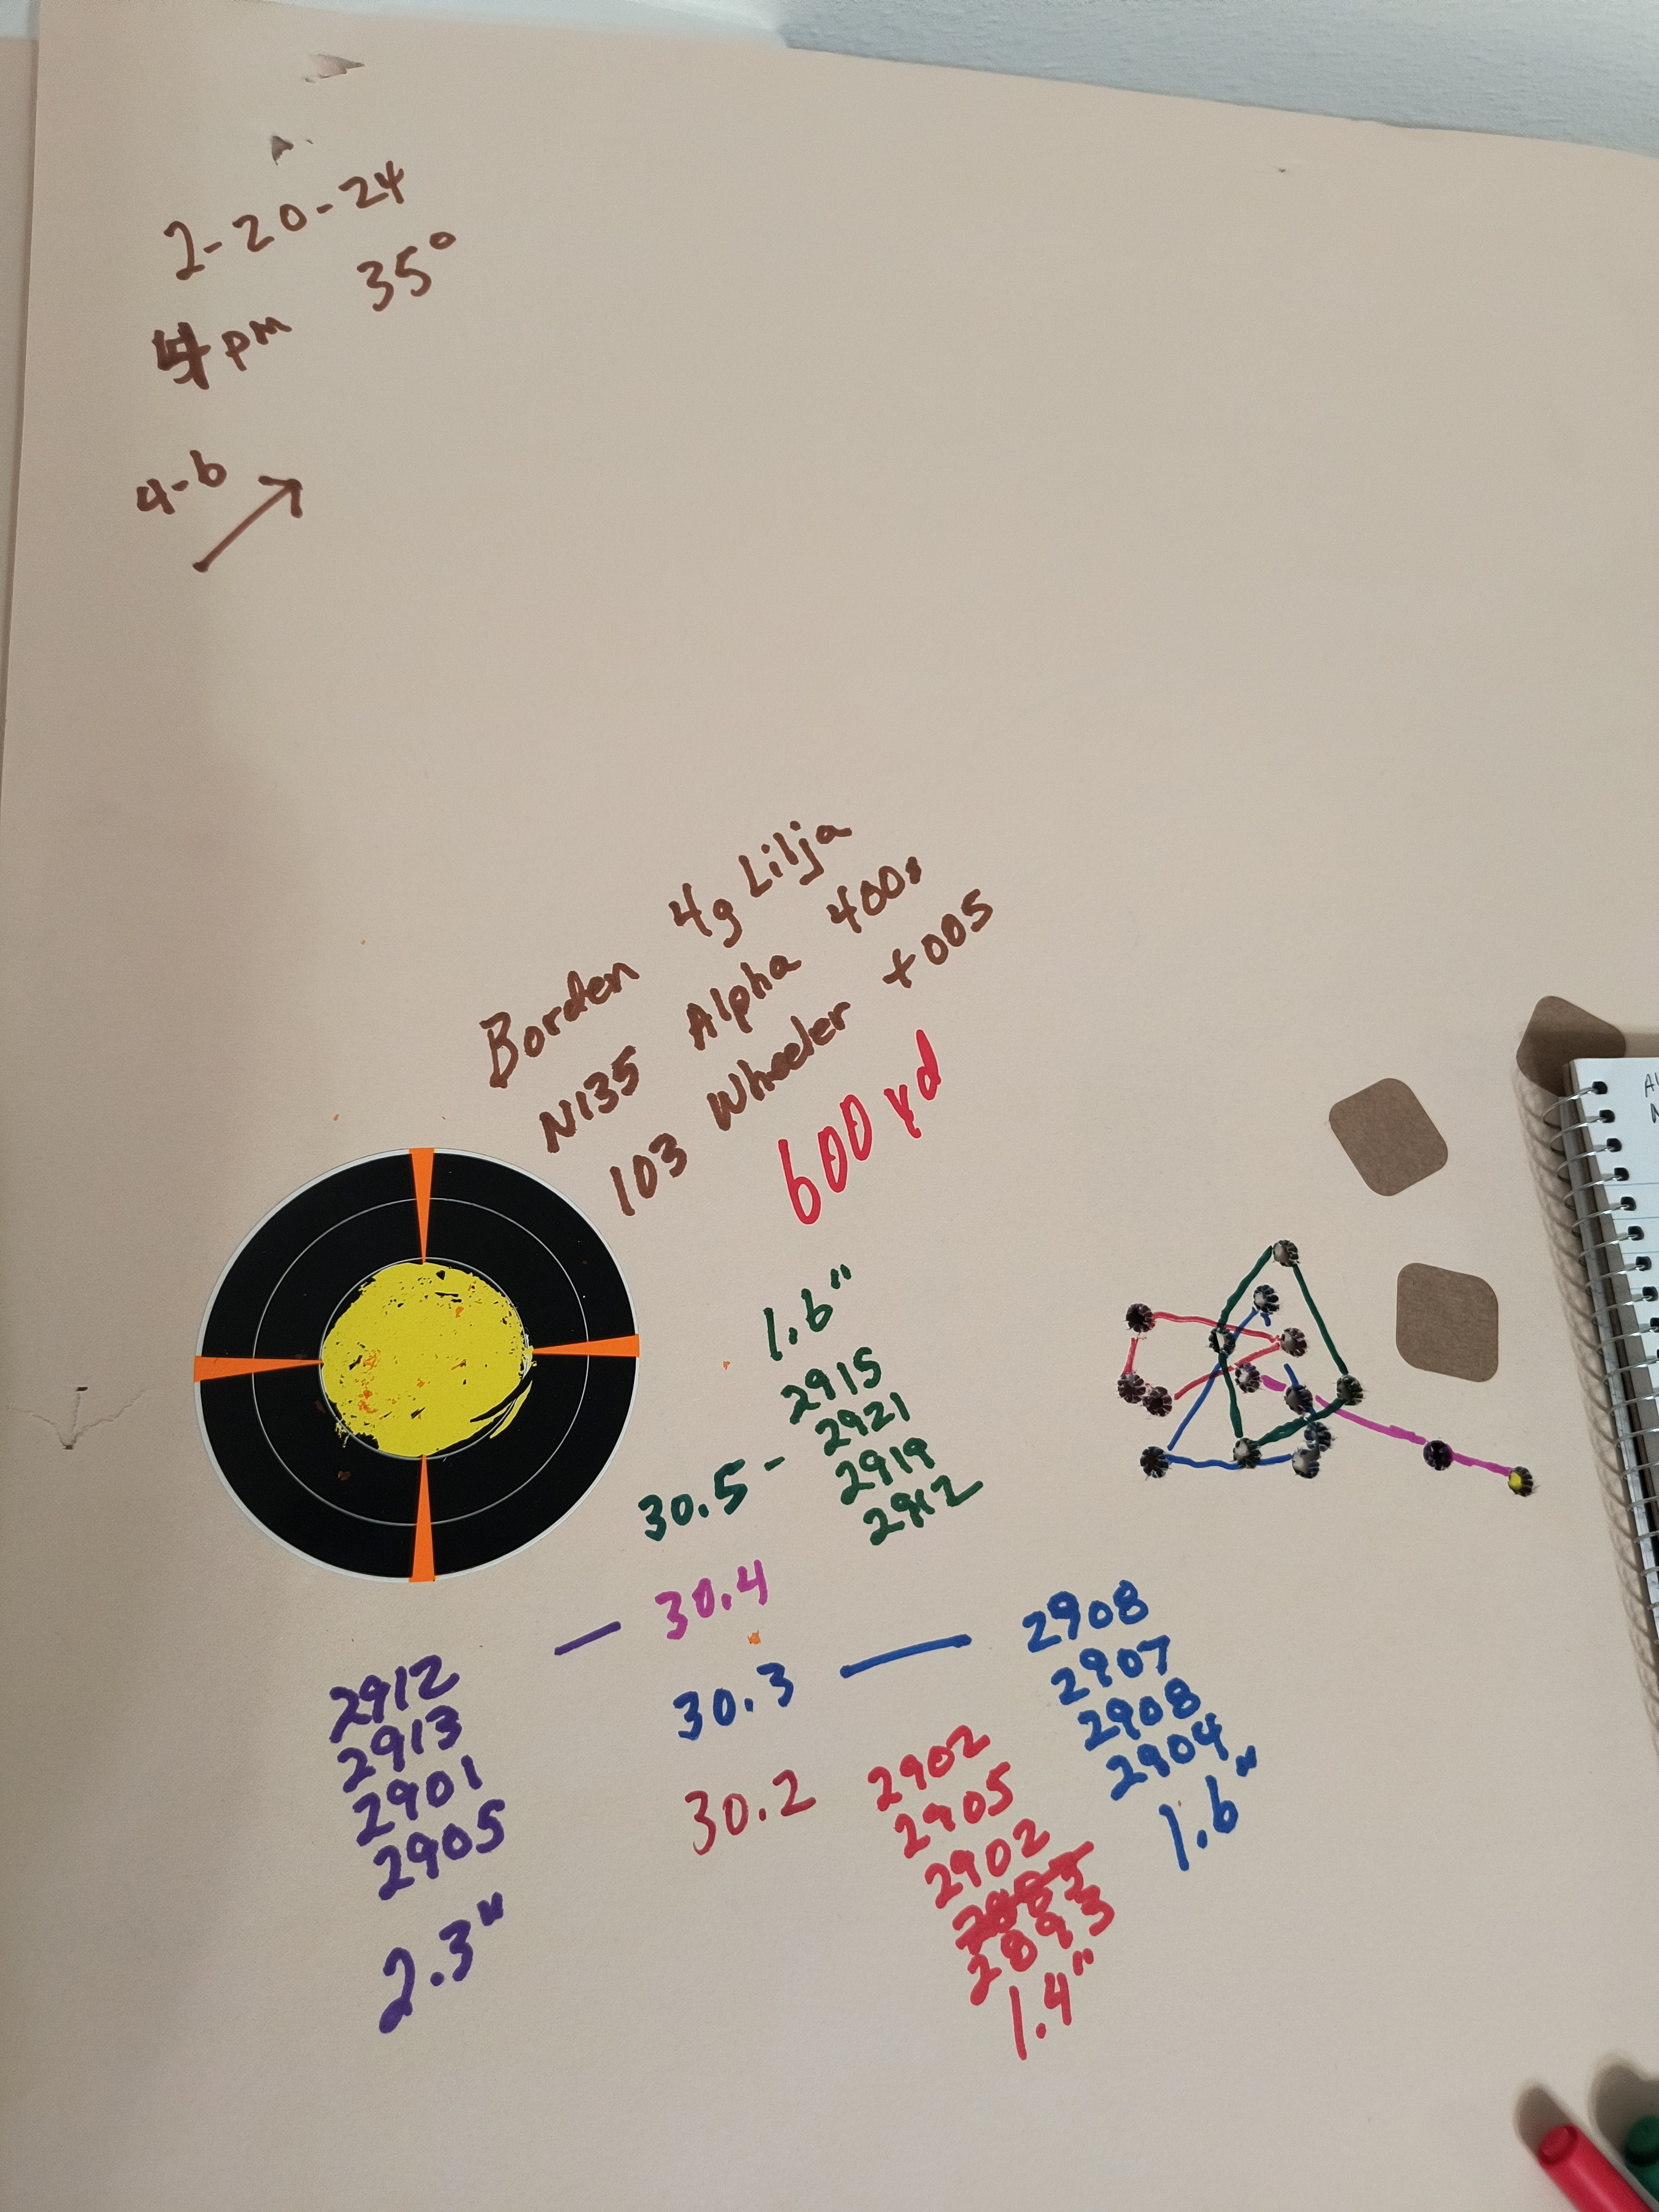 2-20-24
4pm 35°
4-6
Borden 4g Lilja
N135 Alpha 400s
103 Wheeler +005
600 yd
1.6"
2915
2921
2919
2912
30.5 -
— 30.4
2912
2913
2901
2905
2.3"
30.3 —
2908
2907
2908
2904
1.6"
30.2
2902
2905
2902
2893
1.4"